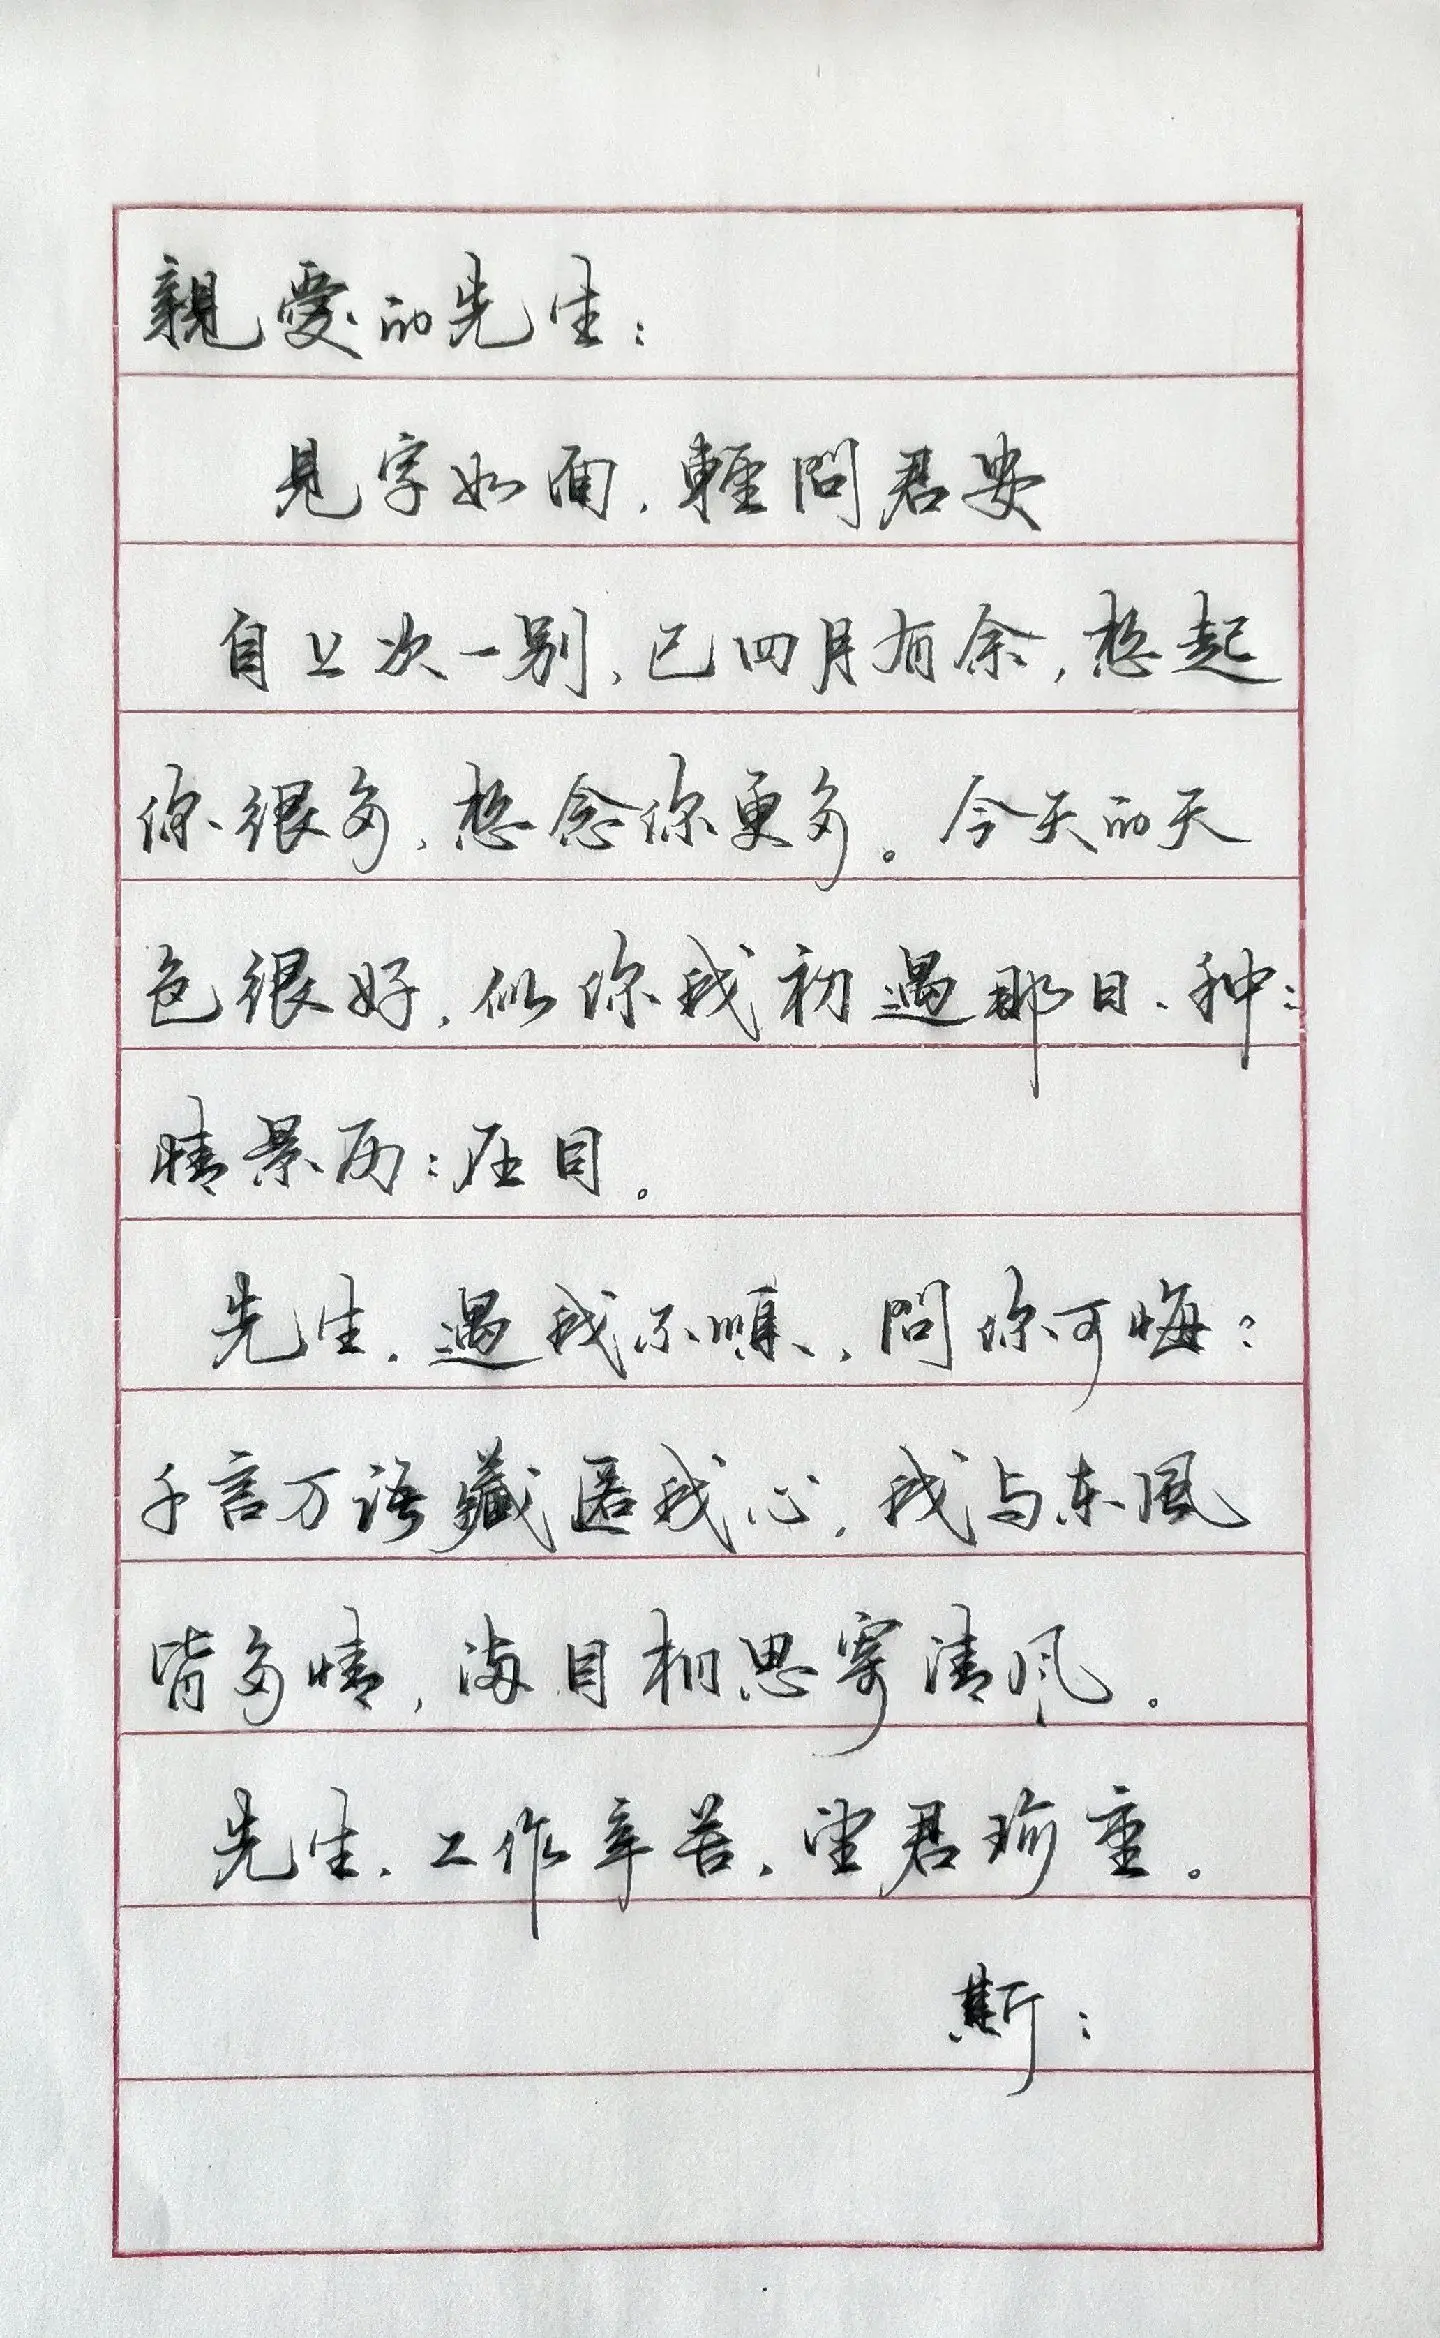 親爱的先生：
見字如面，輕問君安
自上次一别，已四月有余，想起
你很多，想念你更多。今天的天
色很好，似你我初遇那日、种：
情景历：在目。
先生，遇我不順，問你可悔？
千言万语藏匿我心，我与东風
皆多情，满目相思寄清风。
先生，工作辛苦，望君珍重。
斯：